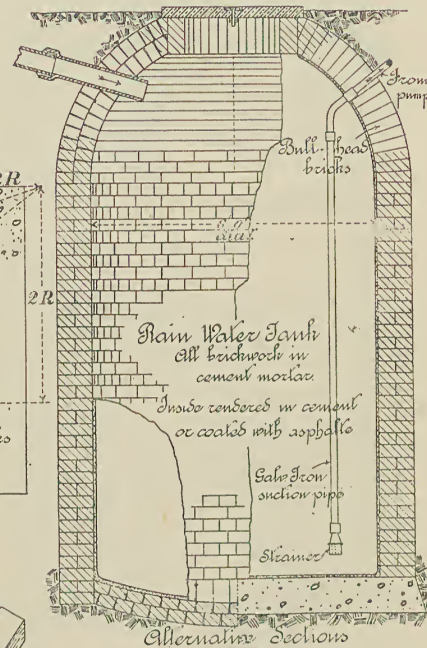 From
pump
Bull-head
bricks
2R
6.0
diar
2R
Rain Water Tank
All brickwork in
cement mortar.
Inside rendered in cement
or coated with asphalte
Galv Iron
suction pipe
Strainer
Alternative Sections